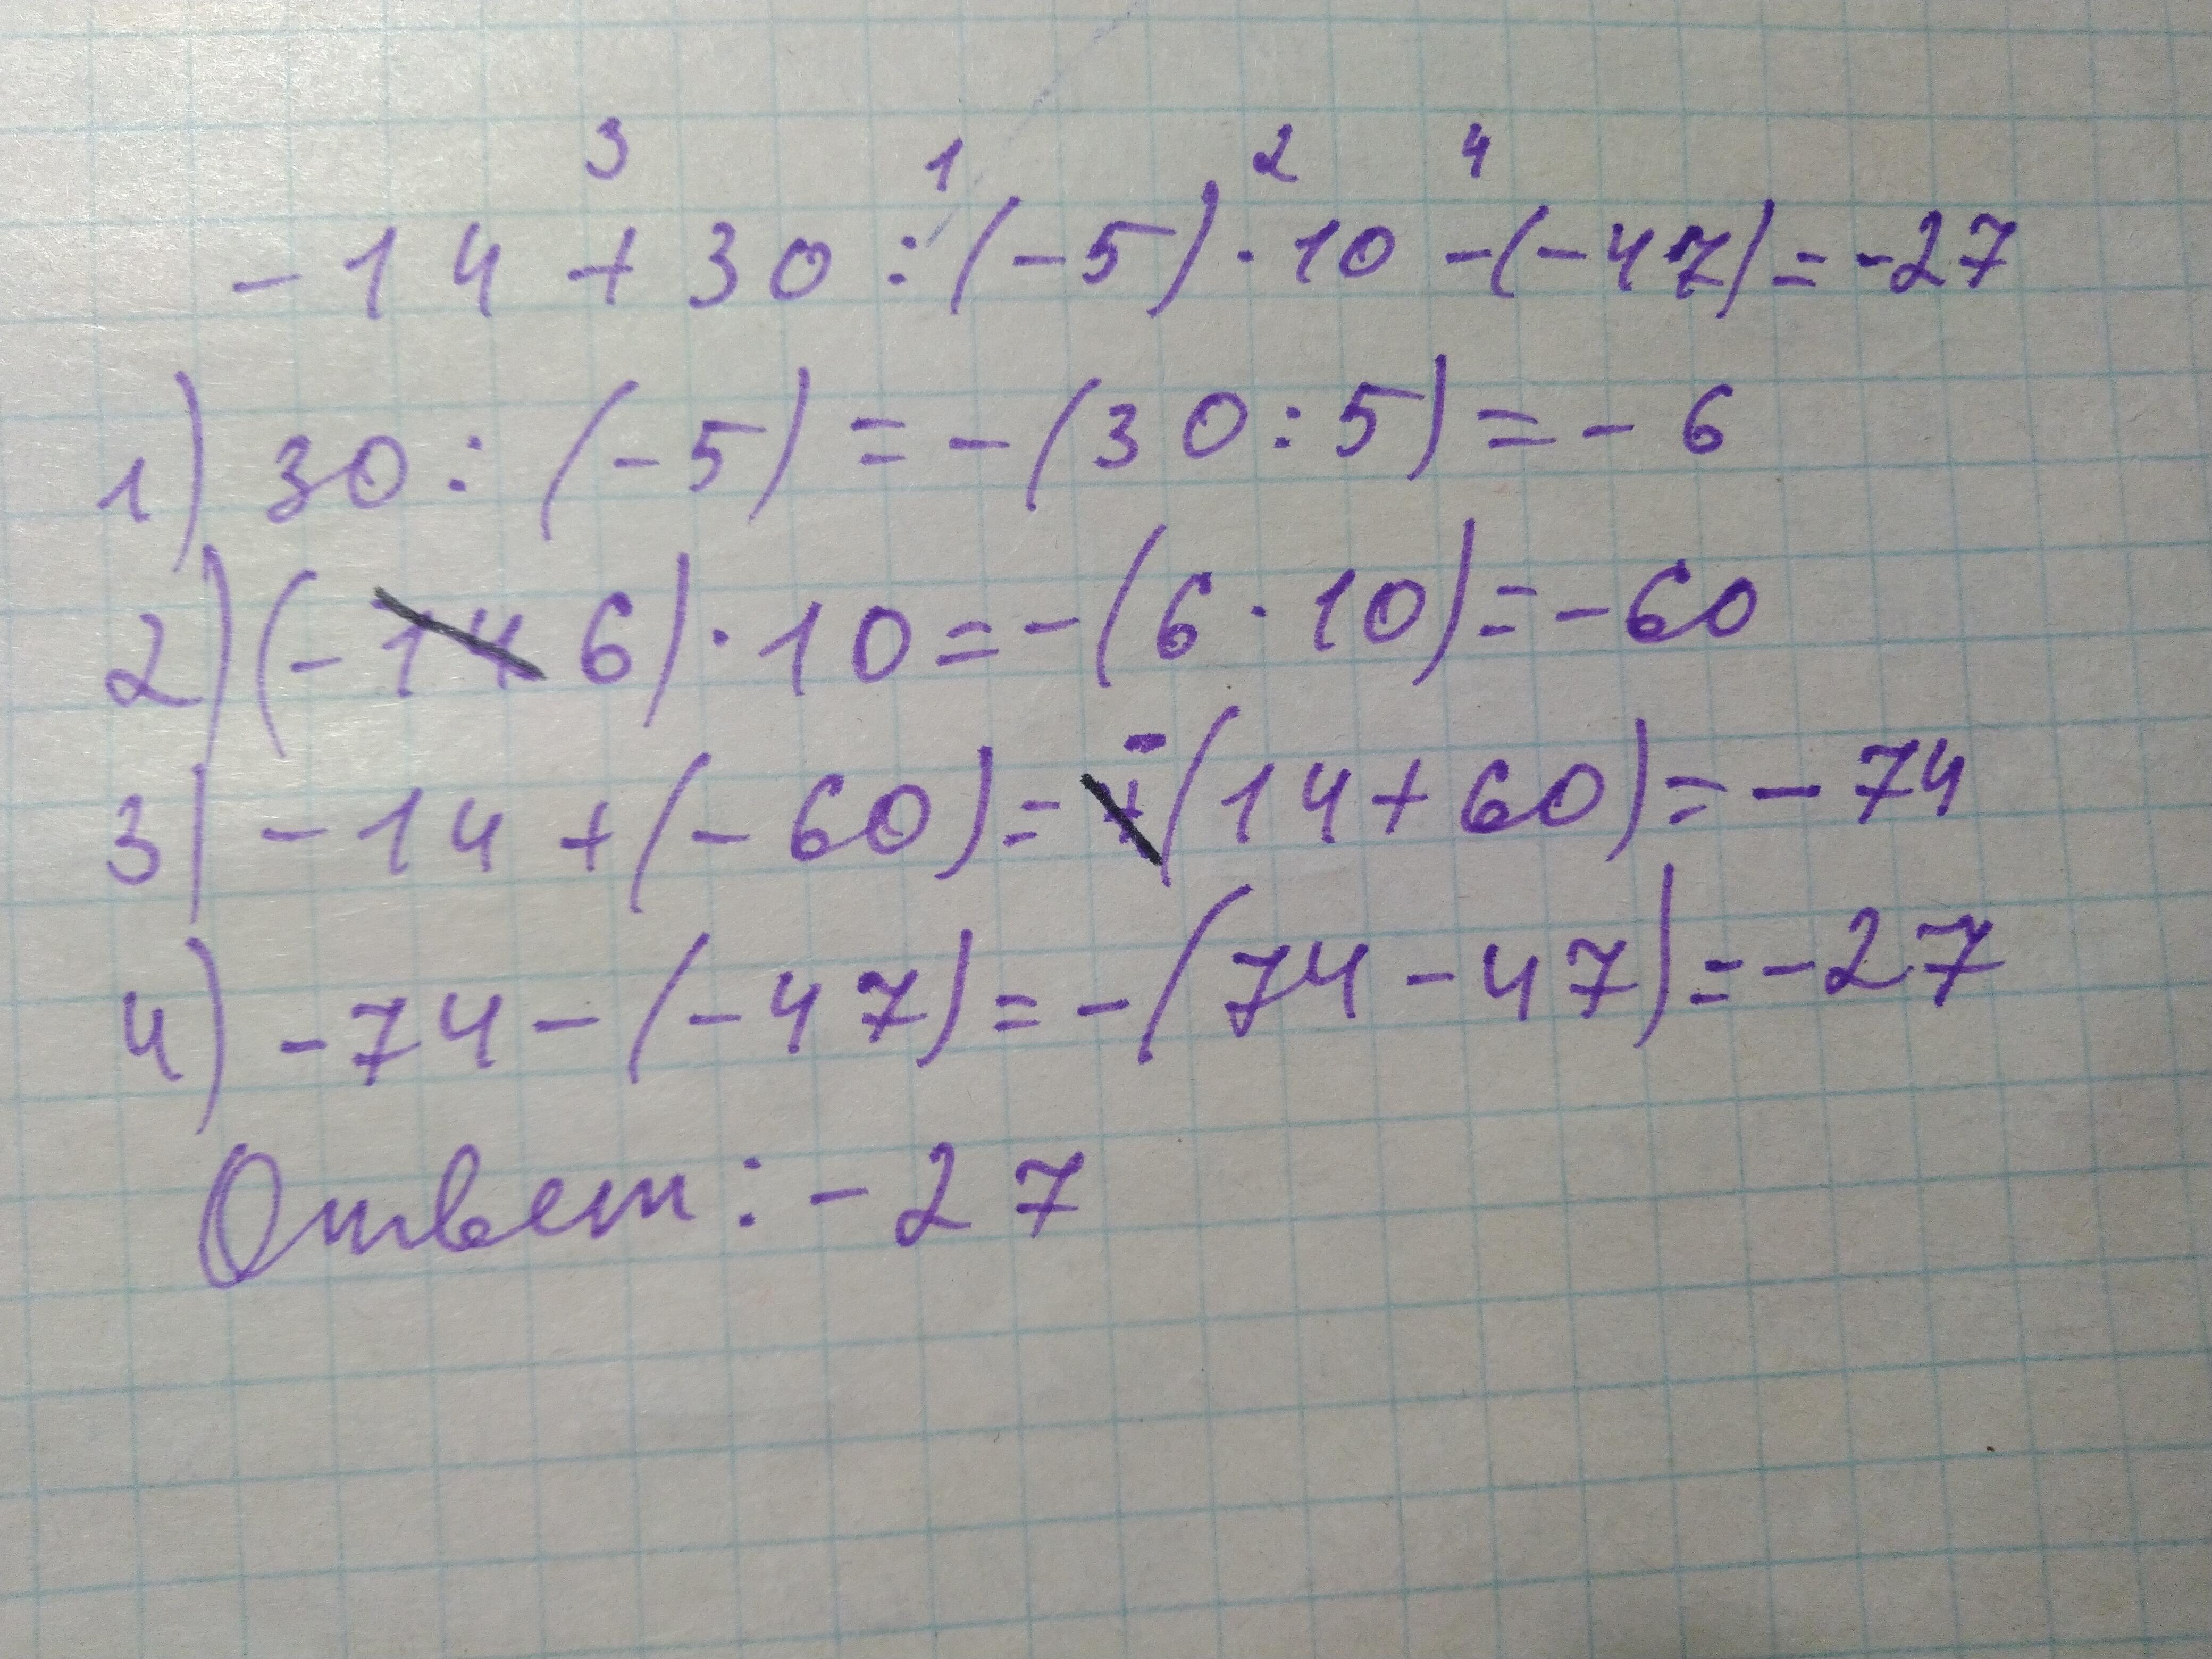 3 1 2 4
-14 + 30 : (-5) · 10 - (-47) = -27
1) 30 : (-5) = -(30 : 5) = - 6
2) (- 14 6) · 10 = -(6 · 10) = -60
3) -14 + (-60) = + -(14 + 60) = - 74
4) -74 - (-47) = -(74 - 47) = -27
Ответ: -27